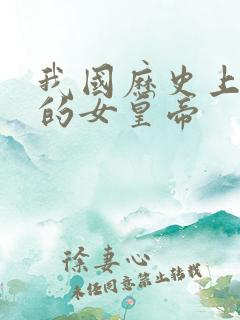 我國历史上
的女皇帝
徐妻心
未经同意禁止转载